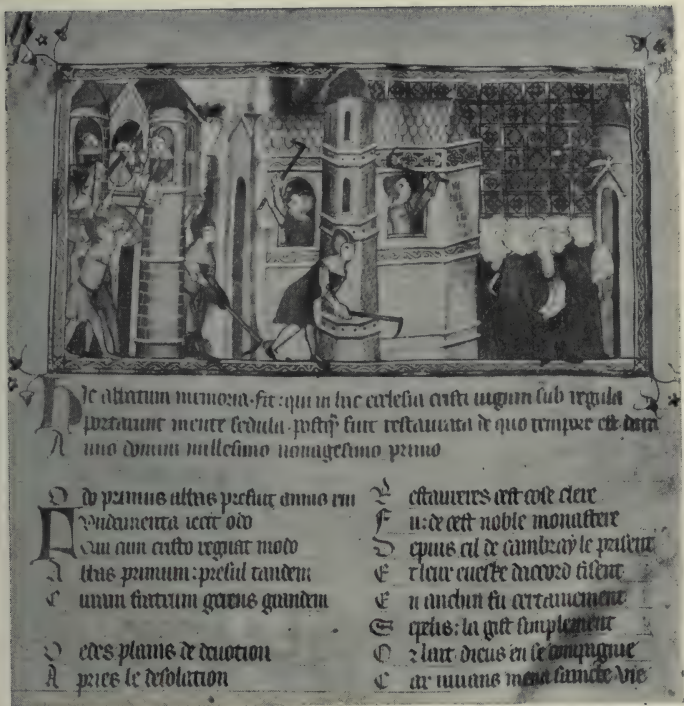 Hic abbatum memoria fit: qui in hac ecclesia cristi iugum sub regula
portarunt mente sedula. postq; fuit restaurata de quo tempore est data
Anno domini millesimo nonagesimo primo
Odo primus abbas prefuit annis
Fundamenta iecit odo
Qui cum cristo regnat modo
Abbas primum: presul tandem
Curam fratrum gerens grandem
Oedes plains de deuotion
Apries le desolation
Restaureres cest cose clere
Fu: de cest noble monastere
Depuis cil de cambray le prisent
Et leur eueske daccord fisent
En anchin fu certainement
Sepelis: la gist simplement
Or lait dieus en se compaignie
Car uiuans mena saincte vie